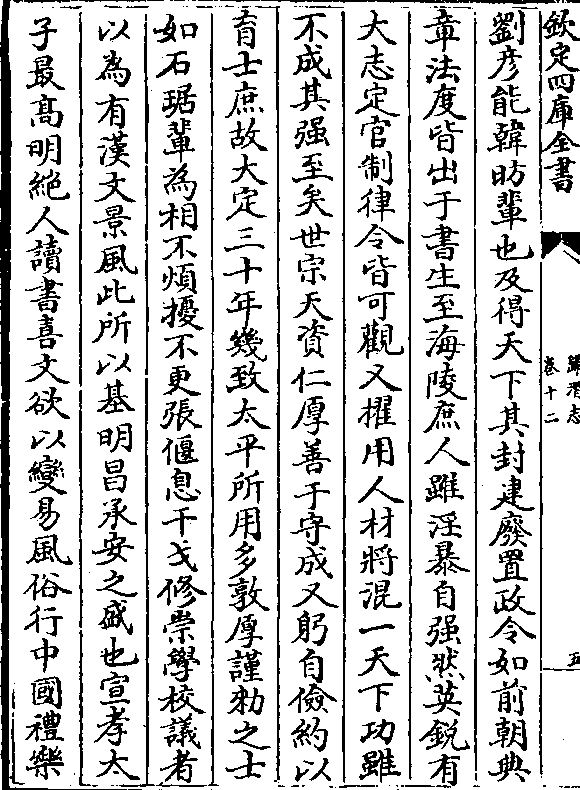 欽定四庫全書
歸潛志
卷十二
五
劉彥能韓昉輩也及得天下其封建廢置政令如前朝典
章法度皆出于書生至海陵庶人雖淫暴自强然英鋭有
大志定官制律令皆可觀又擢用人材將混一天下功雖
不成其强至矣世宗天資仁厚善于守成又躬自儉約以
育士庶故大定三十年幾致太平所用多敦厚謹勅之士
如石琚輩為相不煩擾不更張偃息干戈修崇學校議者
以為有漢文景風此所以基明昌承安之盛也宣孝太
子最髙明絶人讀書喜文欲以變易風俗行中國禮樂